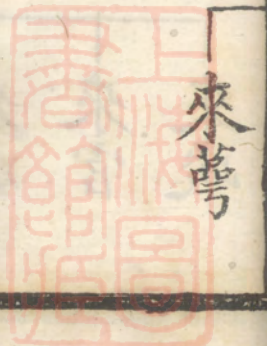 來萼
上海圖
書館藏